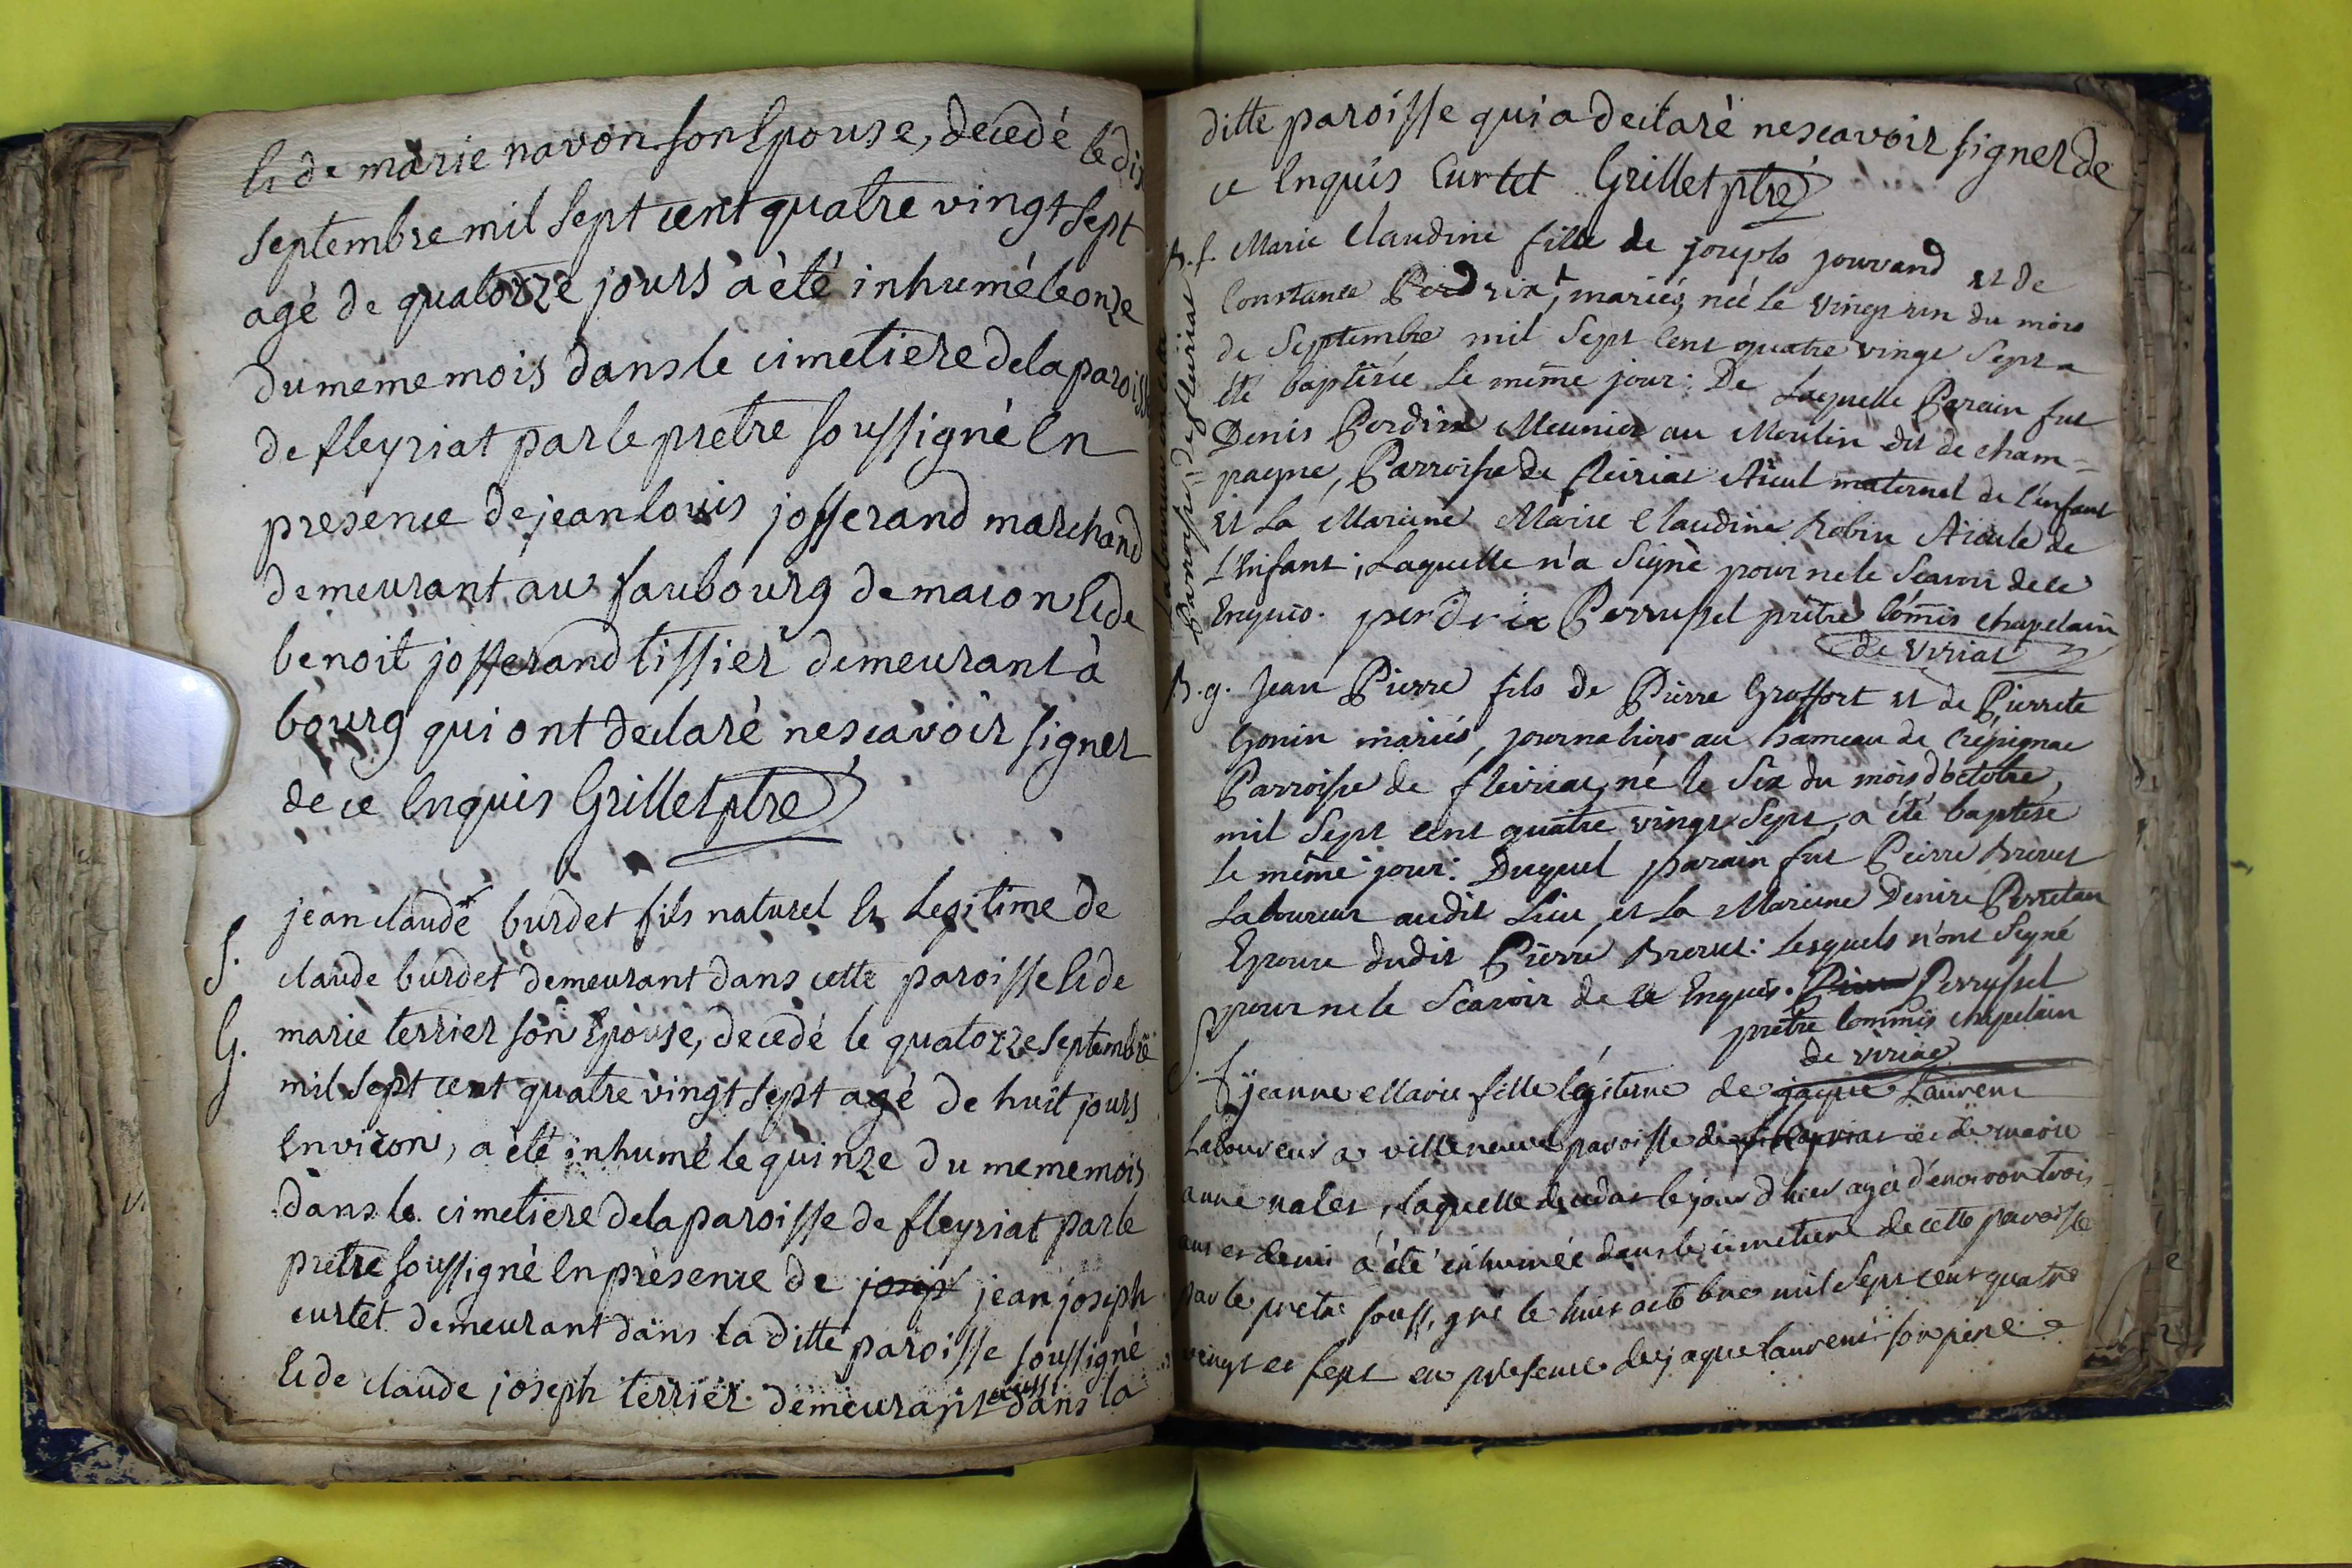 & de marie navon son Epouse, decedé le dix
septembre mil sept cent quatre vingt sept
agé de quatorze jours à èté inhumé le onze
du meme mois dans le cimetiere de la paroisse
de fleyriat par le pretre soussigné En
presence de jean louis josserand marchand
demeurant au faubourg de macon & de
benoit josserand tissier demeurant à
bourg qui ont declaré ne scavoir signer
de ce Enquis Grillet ptre
S.
G.
jean claude burdet fils naturel & legitime de
claude burdet demeurant dans cette paroisse & de
marie terrier son Epouse, decedé le quatorze septembre
mil sept cent quatre vingt sept agé de huit jours
Environ, a èté inhumé le quinze du meme mois
dans le cimetiere de la paroisse de fleyriat par le
pretre soussigné En prèsence de josep jean joseph
curtet demeurant dans la ditte paroisse soussigné
& de claude joseph terrier demeurant aussi dans la
ditte paroisse qui a declaré ne scavoir signer de
ce Enquis Curtet Grillet ptre
B. f. Marie Claudine fille de joseph jouvand et de
Constance Perdrix, mariés, née le vingt un du mois
de Septembre mil Sept Cent quatre vingt Sept a
été baptisée le même jour : De Laquelle Parain fut
Denis Perdrix Meunier au Moulin dit de cham=
pagne, Parroisse de fleiriat Aïeul maternel de l'enfant
et La Maraine Marie Claudine Robin Aïeule de
L'Enfant ; Laquelle n'a Signé pour ne le Scavoir de ce
Enquis. perdrix Perrussel prêtre Commis chapelain
de viriat
parroisse de fleiriat
B. g. Jean Pierre fils de Pierre Groffort et de Pierrete
Gonin mariés, journaliers au hameau de Crépignac
Parroisse de fleiriat, né le Six du mois d'octobre,
mil Sept cent quatre vingt Sept, a été baptisé
le même jour : Duquel parain fut Pierre Brevet
Laboureur audit Lieu, et La Maraine Denise Perretan
Epouse dudit Pierre Brevet : Lesquels n'ont Signé
pour ne le Scavoir de ce Enquis. Pierre Perrussel
prêtre Commis chapelain
de viriat
S. f jeanne Marie fille légitime de jaque Laurent
Laboureur a villeneuve paroisse de fleyriat et de marie
anne nales, laquelle decedat le jour d'hier agée d'environ trois
ans et demi a été inhumée dans le cimetiere de cette paroisse
par le pretre soussigné le huit octobre mil Sept cent quatre
vingt et sept en presence de jaque laurent son pere